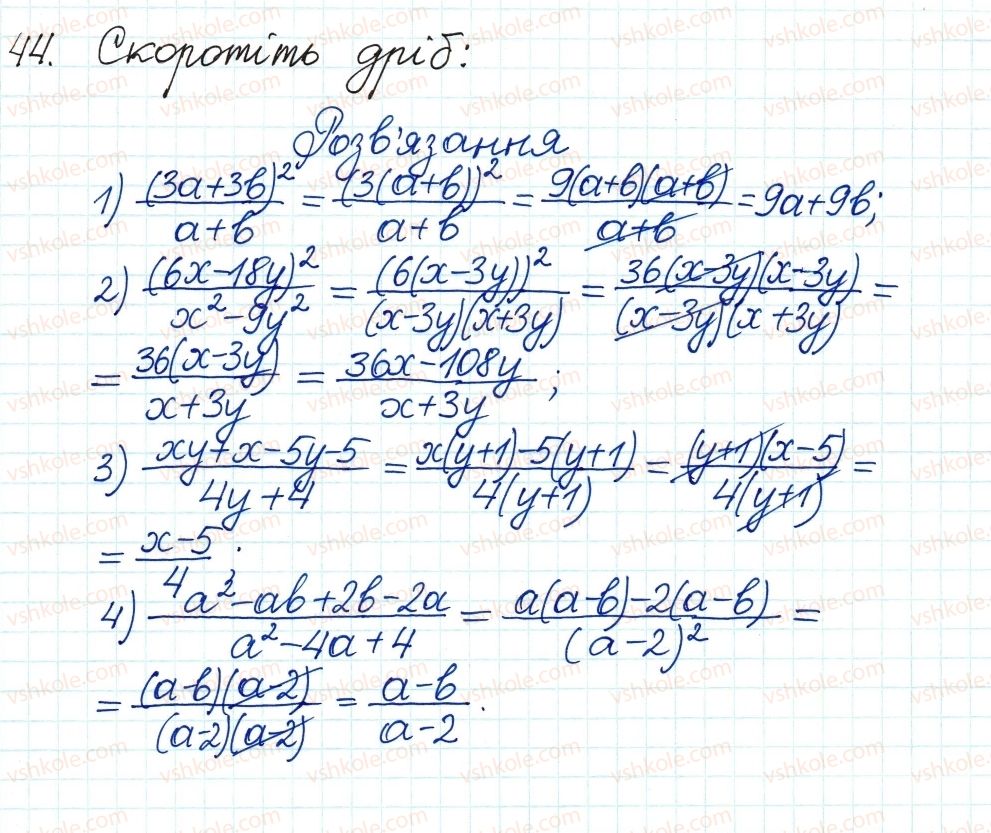 44. Скоротіть дріб:
Розв'язання
1) (3a+3b)²/(a+b) = (3(a+b))²/(a+b) = 9(a+b)(a+b)/(a+b) = 9a+9b;
2) (6x-18y)²/(x²-9y²) = (6(x-3y))²/((x-3y)(x+3y)) = 36(x-3y)(x-3y)/((x-3y)(x+3y)) =
= 36(x-3y)/(x+3y) = (36x-108y)/(x+3y);
3) (xy+x-5y-5)/(4y+4) = (x(y+1)-5(y+1))/(4(y+1)) = (y+1)(x-5)/(4(y+1)) =
= (x-5)/4;
4) (a²-ab+2b-2a)/(a²-4a+4) = (a(a-b)-2(a-b))/(a-2)² =
= (a-b)(a-2)/((a-2)(a-2)) = (a-b)/(a-2).
vshkole.com